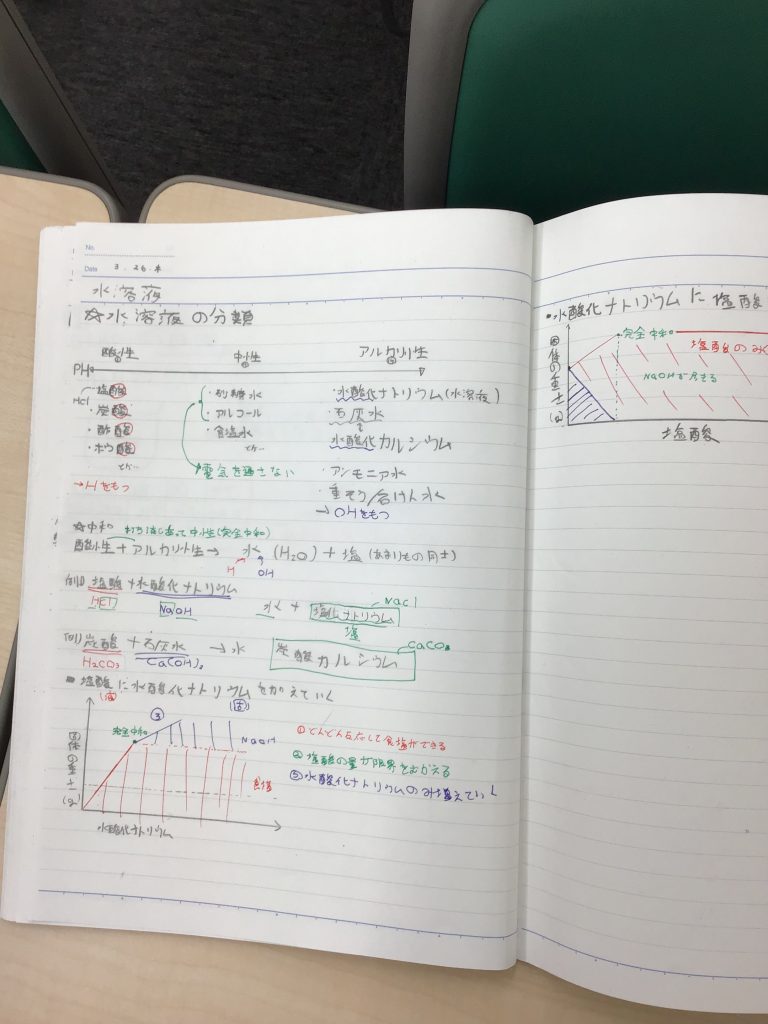 No.
Date 3.26.木
水溶液
☆水溶液の分類
酸性 中性 アルカリ性
PH
HCl ・塩酸 ・砂糖水 ・水酸化ナトリウム(水溶液)
・炭酸 ・アルコール ・石灰水
・酢酸 ・食塩水 水酸化カルシウム
・ホウ酸 とか…
とか… 電気を通さない ・アンモニア水
・重そう/石けん水
→Hをもつ →OHをもつ
☆中和 打ち消し合って中性(完全中和)
酸性+アルカリ性→ 水 (H₂O) + 塩 (あまりもの同士)
H OH
(例) 塩酸+水酸化ナトリウム NaCl
HCl NaOH 水 + 塩化ナトリウム
塩
(例) 炭酸+石灰水 →水 炭酸カルシウム CaCO₃
H₂CO₃ Ca(OH)₂
塩酸に水酸化ナトリウムを加えていく
(液) (固)
③
完全中和
NaOH
食塩
固体の重さ(g)
水酸化ナトリウム
①どんどん反応して食塩ができる
②塩酸の量が限界をむかえる
③水酸化ナトリウムのみ増えていく
・水酸化ナトリウムに塩酸
完全中和
塩酸のみ
NaOHで
できる
固体の重さ(g)
塩酸